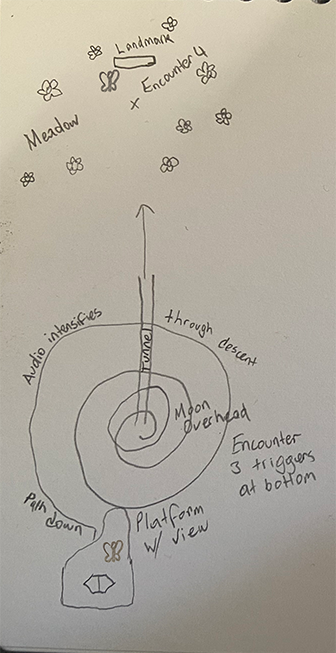 Landmark
Encounter 4
x
Meadow
Audio intensifies
through descent
Tunnel
Moon
Overhead
Encounter
3 triggers
at bottom
Path
down
Platform
w/ view